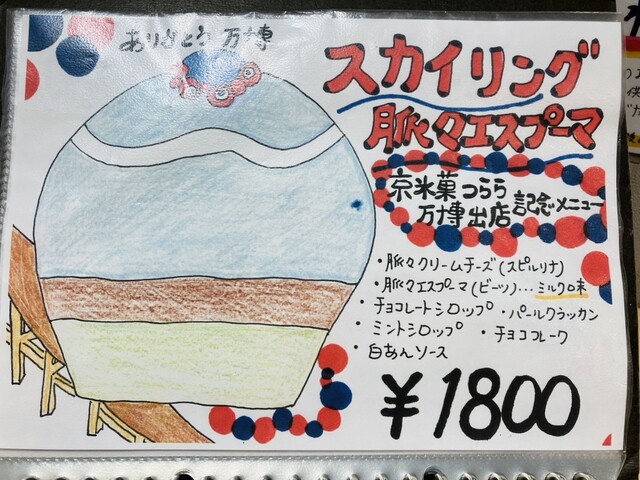 ありがとう万博
スカイリング
脈々エスプーマ
京氷菓つらら
万博出店
記念メニュー
・脈々クリームチーズ(スピルリナ)
・脈々エスプーマ(ビーツ)…ミルク味
・チョコレートシロップ ・パールクラッカン
・ミントシロップ ・チョコフレーク
・白あんソース
¥1800